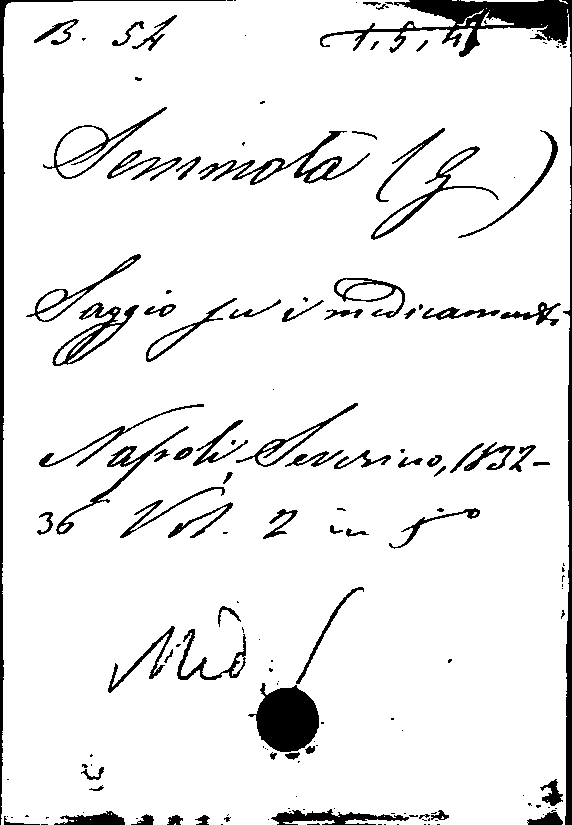 B. 54 1,5,4
Semmola (G)
Saggio su i medicamenti
Napoli, Severino, 1832-
36 Vol. 2 in 8°
Med.